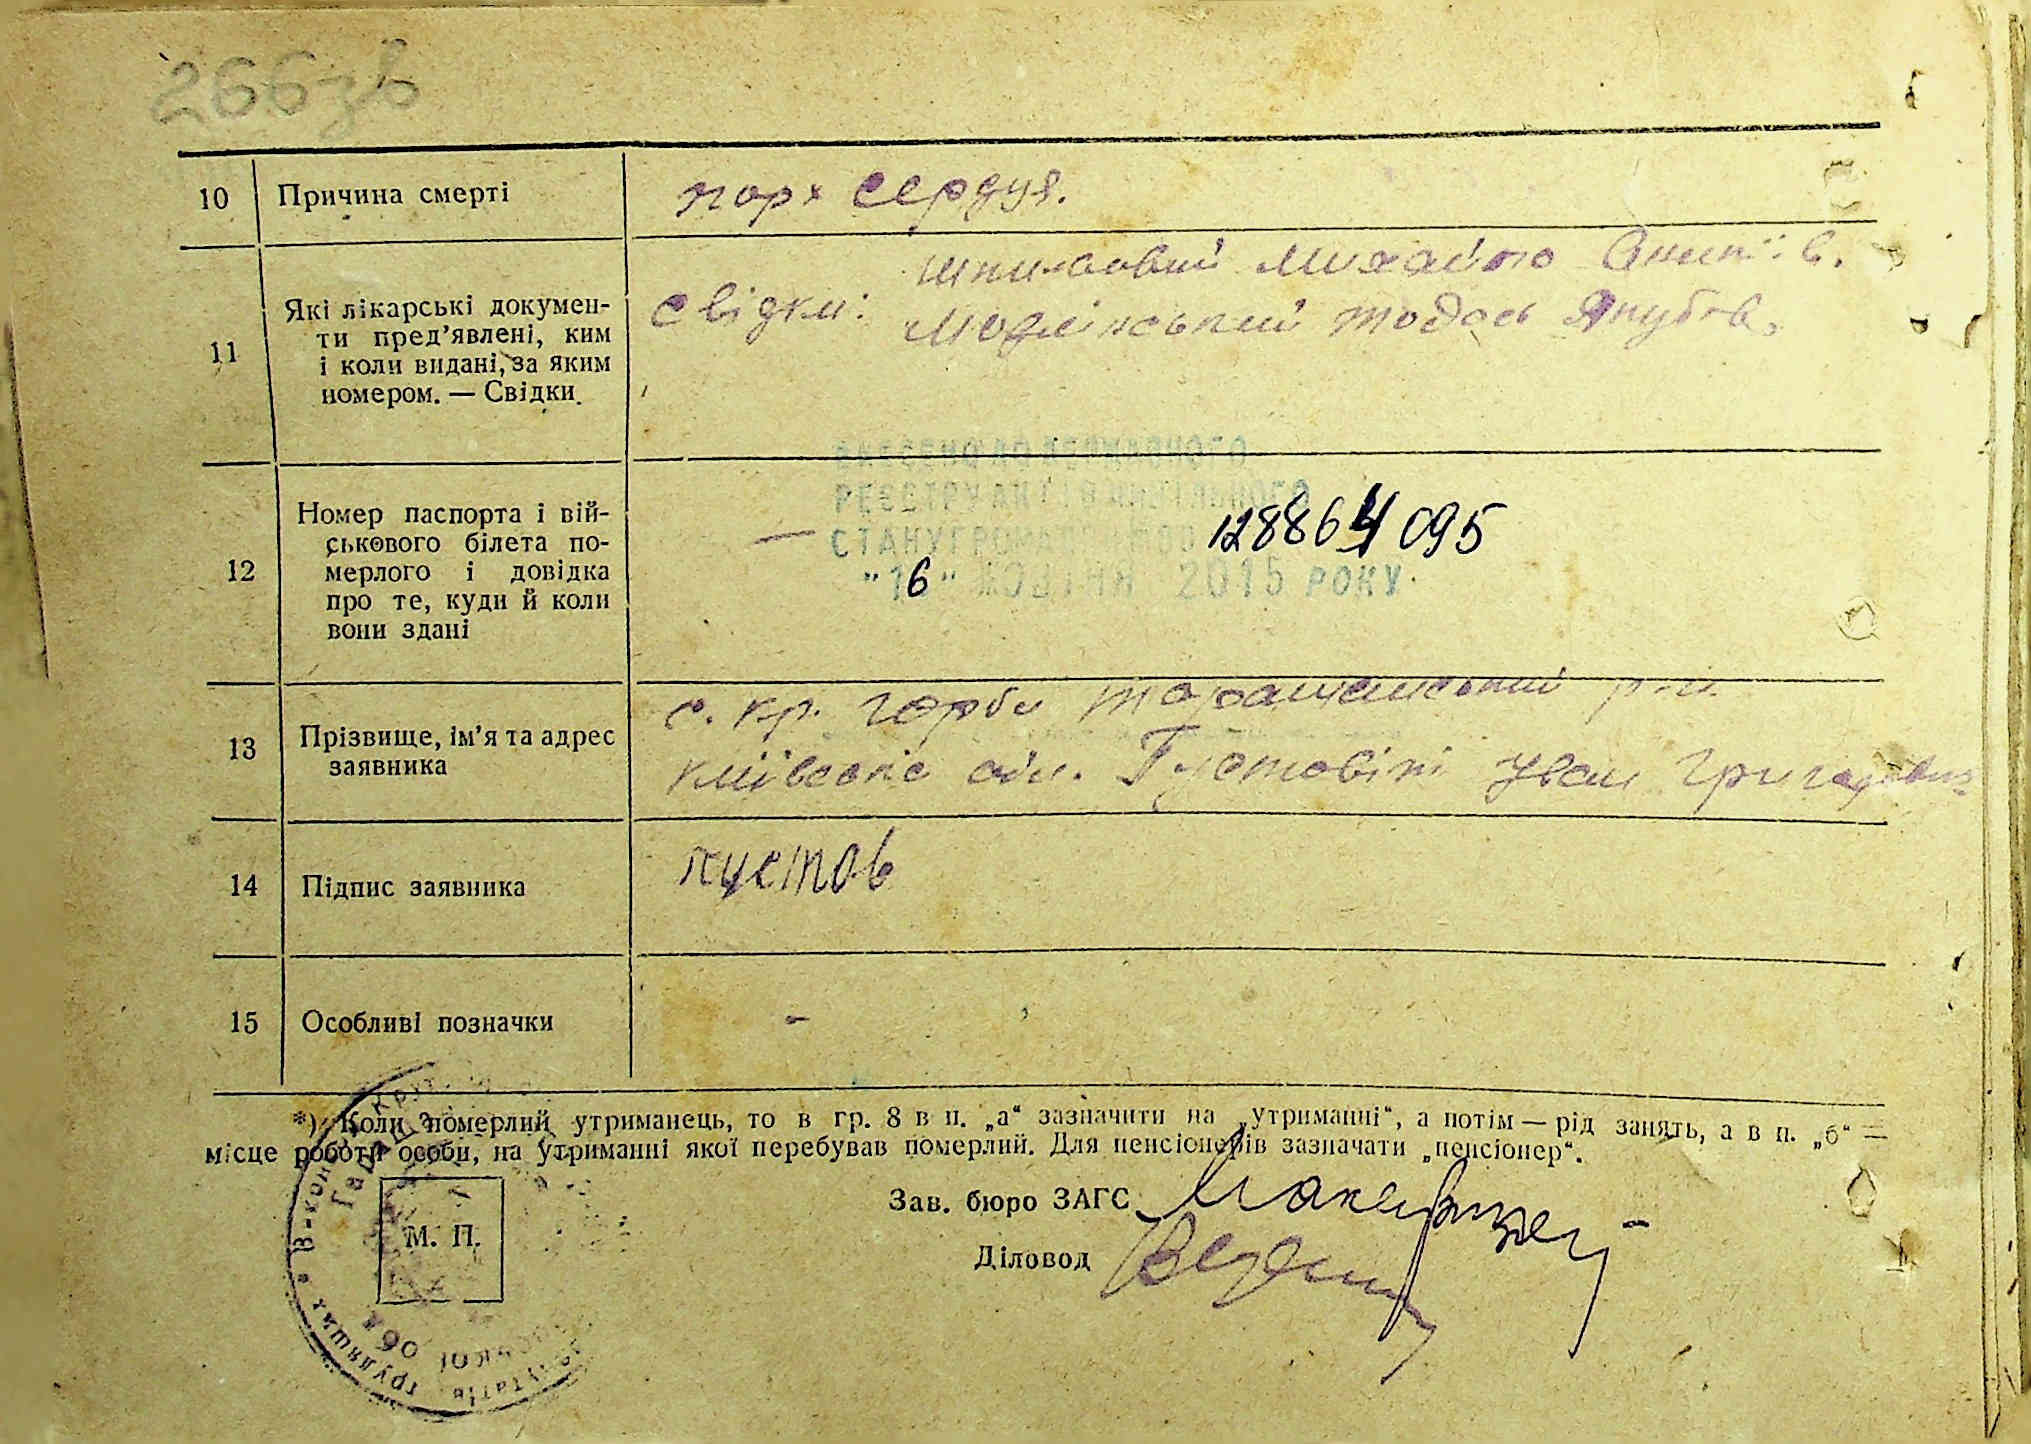 266зв
10 Причина смерті
порх сердця.
11 Які лікарські докумен-
ти пред’явлені, ким
і коли видані, за яким
номером. — Свідки.
Свідки: Михайло
Тодось Якубів.
12 Номер паспорта і вій-
ськового білета по-
мерлого і довідка
про те, куди й коли
вони здані
—
ВНЕСЕНО ДО ДЕРЖАВНОГО
РЕЄСТРУ АКТІВ ЦИВІЛЬНОГО
СТАНУ ГРОМАДЯН 128864095
"16" ЖОВТНЯ 2015 РОКУ
13 Прізвище, ім’я та адрес
заявника
с. Кр. Горби Таращанський р-н
Київської обл. Пустовіт Іван Григорович
14 Підпис заявника
пустов
15 Особливі позначки
-
*) Коли померлий утриманець, то в гр. 8 в п. „а“ зазначити на „утриманні“, а потім — рід занять, а в п. „б“ —
місце роботи особи, на утриманні якої перебував померлий. Для пенсіонерів зазначати „пенсіонер“.
М. П.
Зав. бюро ЗАГС
Діловод
трудящих